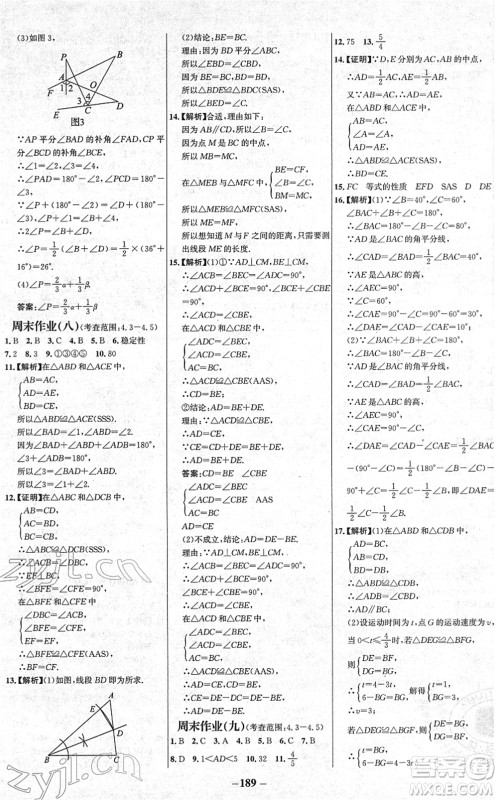 (3)如图3,
P
B
A
O
F
1
2
3
4
C
E
D
图3
∵AP平分∠BAD的补角∠FAD,CP平
分∠BCD的补角∠BCE,
∴∠1=∠2,∠3=∠4,
∴∠PAD=180°-∠2,∠PCD=180°-
∠3.
∵∠P+(180°-∠1)=∠D+(180°-∠3),
∠P+∠1=∠B+∠4,
∴2∠P=∠B+∠D,
∴∠P=1/2(∠B+∠D)=1/2×(36°+
16°)=26°.
(4)∠P=2/3α+1/3β
答案:∠P=2/3α+1/3β
周末作业(八)(考查范围:4.3-4.5)
1.B 2.B 3.C 4.B 5.B 6.稳定性
7.2 8.3 9.①③④⑤ 10.80
11.【解析】在△ABD和△ACE中,
AB=AC,
AD=AE,
BD=CE,
所以△ABD≌△ACE(SSS).
所以∠BAD=∠1,∠ABD=∠2.
因为∠BAD+∠ABD+∠ADB=180°,
∠3+∠ADB=180°,
所以∠3=∠BAD+∠ABD.
所以∠3=∠1+∠2.
12.【证明】在△ABC和△DCB中,
AB=DC,
AC=DB,
BC=CB,
∴△ABC≌△DCB(SSS).
∴∠DBC=∠ACB.
∵EF⊥BC,
∴∠BFE=∠CFE=90°.
在△BFE和△CFE中,
∠DBC=∠ACB,
∠BFE=∠CFE,
EF=EF,
∴△BFE≌△CFE(AAS).
∴BF=CF.
13.【解析】(1)如图,线段BD即为所求.
A
D
B
C
(2)结论:BE=BC.
理由:因为BD平分∠ABC,
所以∠EBD=∠CBD,
因为∠BED=∠C,BD=BD,
所以△EBD≌△CBD(AAS),
所以BE=BC.
14.【解析】合适,理由如下:
因为AB∥CD,所以∠B=∠C,
因为点M是BC的中点,
所以MB=MC,
在△MEB与△MFC中,
BE=CF,
∠B=∠C,
BM=MC,
所以△MEB≌△MFC(SAS),
所以ME=MF,
所以想知道M与F之间的距离,只需要测
出线段ME的长度.
15.【解析】(1)①∵AD⊥CM,BE⊥CM,
∴∠ACB=∠BEC=∠ADC=90°,
∴∠ACD+∠BCE=90°,∠BCE+∠CBE=
90°,
∴∠ACD=∠CBE,
在△ACD和△CBE中,
∠ADC=∠BEC
∠ACD=∠CBE
AC=CB
∴△ACD≌△CBE(AAS),
∴CD=BE.
②结论:AD=BE+DE.
理由:∵△ACD≌△CBE,
∴AD=CE,CD=BE,
∵CE=CD+DE=BE+DE,
∴AD=BE+DE.
答案:CD=BE ∠CBE
∠ADC=∠BEC
∠ACD=∠CBE
AC=CB
△CBE AAS
(2)不成立,结论:AD+DE=BE.
理由:∵AD⊥CM,BE⊥CM,
∴∠ACB=∠BEC=∠ADC=90°,
∴∠ACD+∠BCE=90°,∠BCE+∠CBE=90°,
∴∠ACD=∠CBE,
在△ACD和△CBE中,
∠ADC=∠BEC
∠ACD=∠CBE
AC=CB,
∴△ACD≌△CBE(AAS),
∴AD=CE,CD=BE,
∵DE=CD-CE=BE-AD,
∴AD+DE=BE.
周末作业(九)(考查范围:4.3-4.5)
1.B 2.C 3.A 4.C 5.D 6.C 7.B
8.D 9.1<AD<5 10.32 11.4/5
12.75 13.5/4
14.【证明】∵D,E分别为AC,AB的中点,
∴AD=CD=1/2AC,AE=BE=1/2AB.
又∵AB=AC,∴AD=AE.
在△ABD和△ACE中,
AB=AC,
∠A=∠A,
AD=AE,
∴△ABD≌△ACE(SAS)
∴BD=CE.
15.FC 等式的性质 EFD SAS D DE
16.【解析】(1)∵∠B=40°,∠C=60°,
∠BAC+∠B+∠C=180°,
∴∠BAC=180°-40°-60°=80°.
∵AD是△ABC的角平分线,
∴∠CAD=∠BAD=1/2∠BAC=40°.
∵AE是△ABC的高,
∴∠AEC=90°.
∵∠C=60°,
∴∠CAE=90°-60°=30°,
∴∠DAE=∠CAD-∠CAE=10°.
(2)∵∠BAC+∠B+∠C=180°,
∴∠BAC=180°-∠B-∠C.
∵AD是△ABC的角平分线,
∴∠CAD=∠BAD=1/2∠BAC.
∵AE是△ABC的高,
∴∠AEC=90°.
∴∠CAE=90°-∠C,
∴∠DAE=∠CAD-∠CAE=1/2∠BAC-
(90°-∠C)=1/2(180°-∠B-∠C)-
90°+∠C=1/2∠C-1/2∠B,即∠DAE=
1/2∠C-1/2∠B.
17.【解析】(1)在△ABD和△CDB中,
AD=BC,
AB=CD,
BD=DB,
∴△ABD≌△CDB,
∴∠ADB=∠CBD,
∴AD∥BC.
(2)设运动时间为t,点G的运动速度为v,
当0<t≤4/3时,若△DEG≌△BFG,
则
DE=BF,
DG=BG.
∴
t=4-3t,
BG=BG,
∴
t=1,
BG=3,
∴v=3;
若△DEG≌△BGF,则
DE=BG,
DG=BF,
∴
t=6-BG,
∴
t=1,
BG=5,
—189—
zyjl.cn